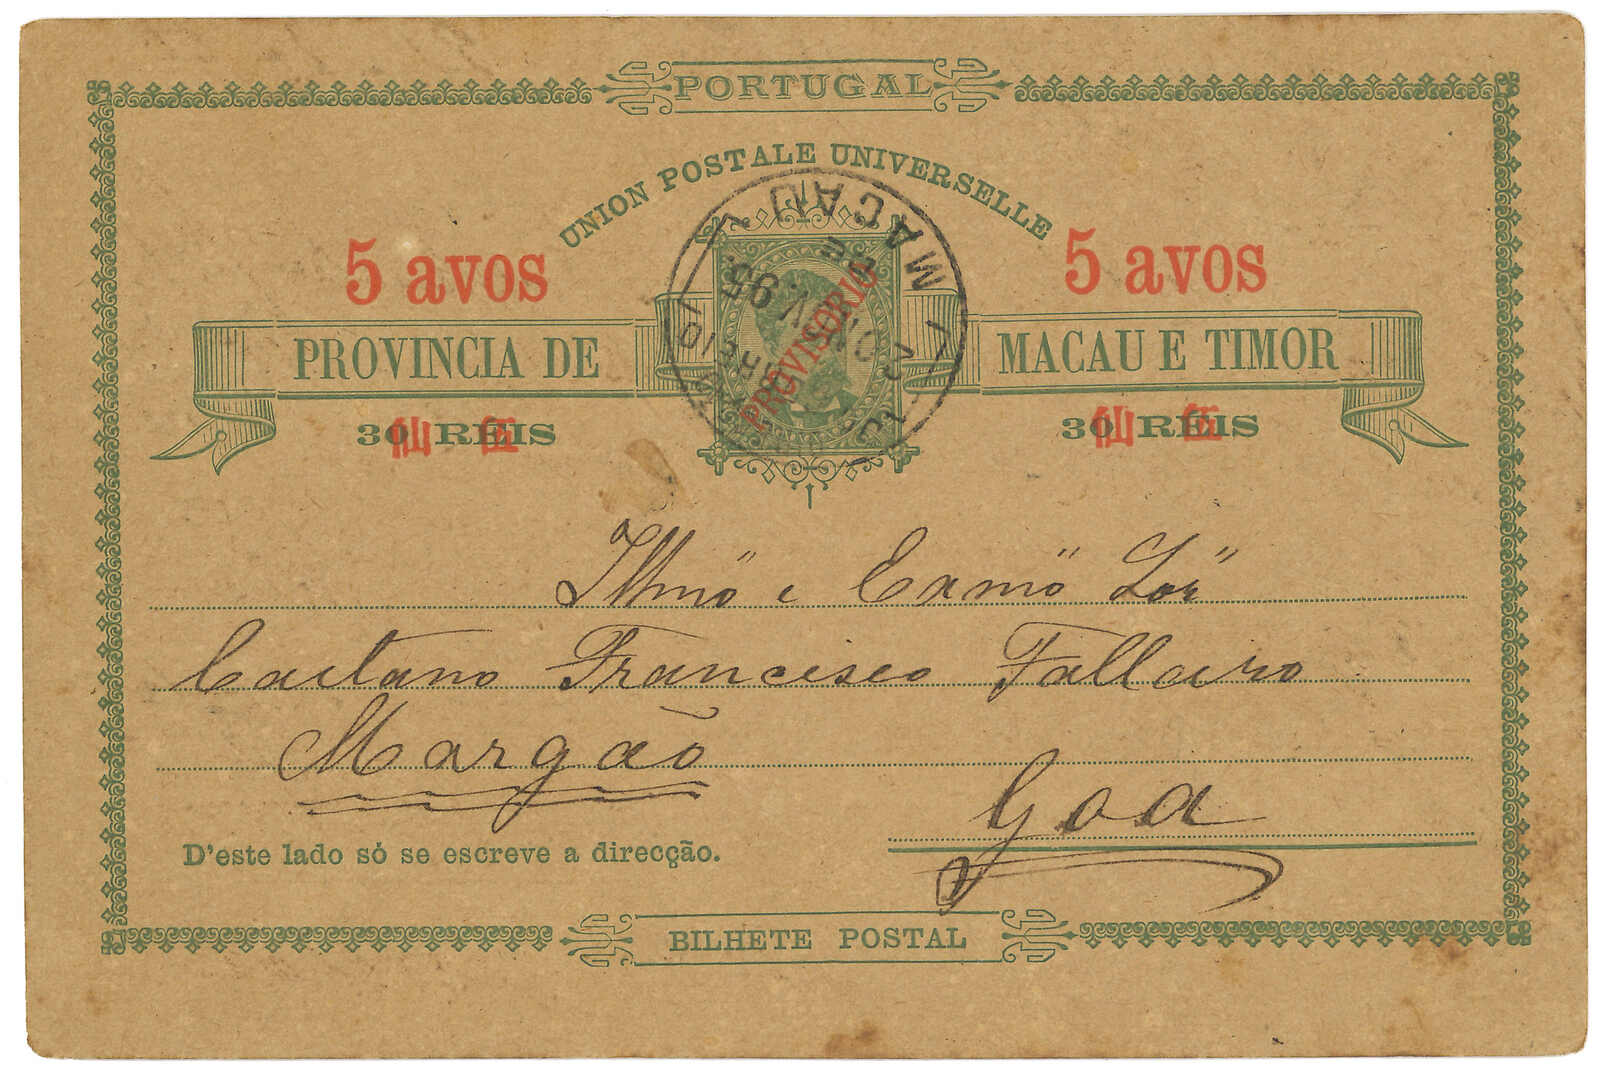 PORTUGAL
UNION POSTALE UNIVERSELLE
5 avos
5 avos
PROVINCIA DE
MACAU E TIMOR
PROVISORIO
MACAU
NOV. 95
30 REIS
30 REIS
仙 伍
仙 伍
Illmo e Exmo Snr
Caetano Francisco Falleiro
Margão
Goa
D'este lado só se escreve a direcção.
BILHETE POSTAL